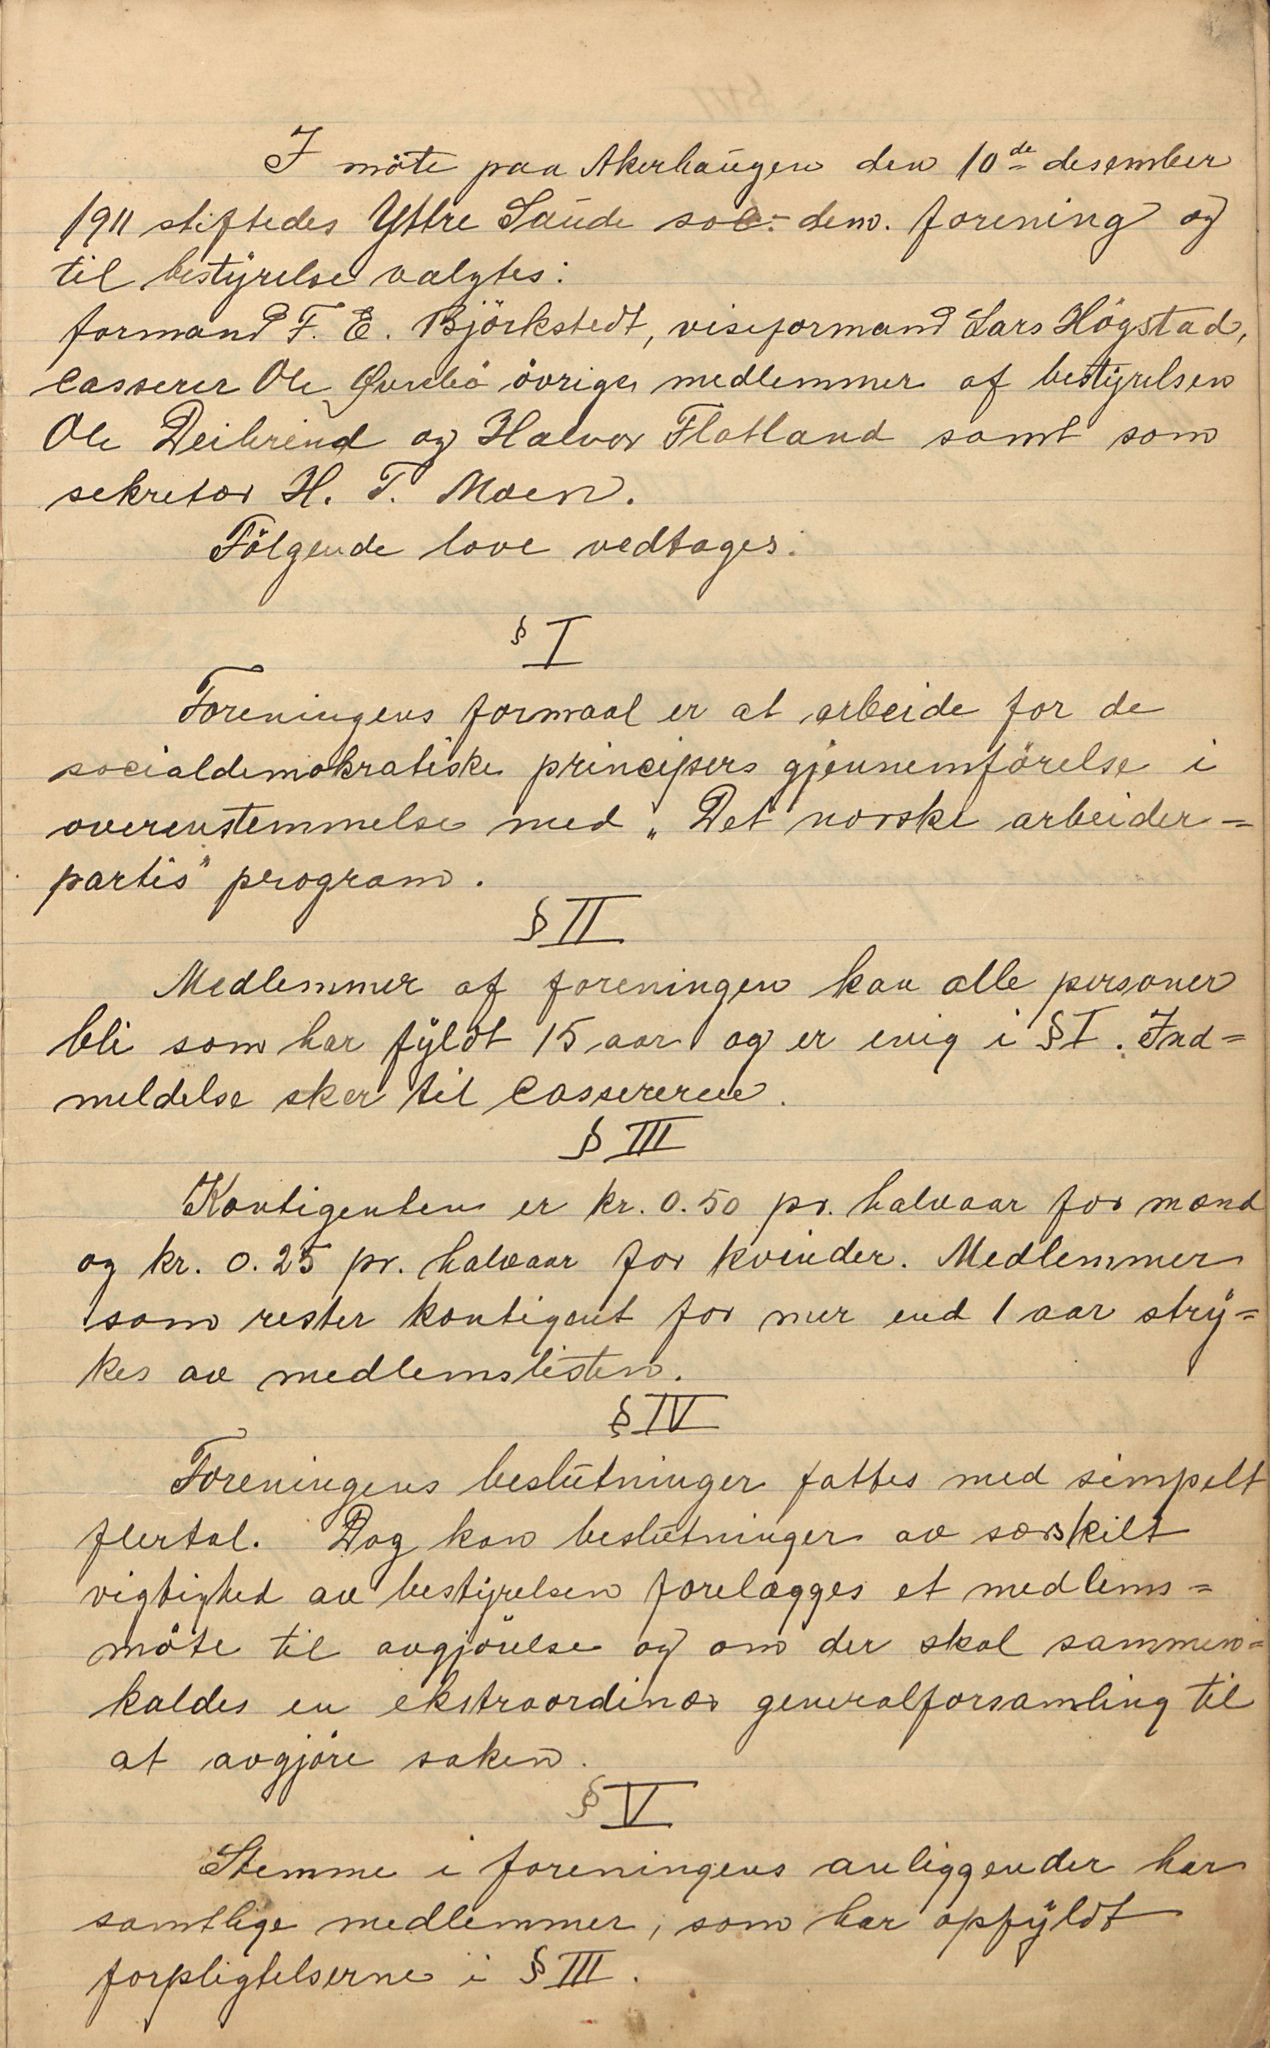 I möte paa Akerhaugen den 10de desember
1911 stiftedes Yttre Saude soc.-dem. forening og
til bestyrelse valgtes:
formand F. E. Björkstedt, viseformand Lars Högstad,
casserer Ole Qvrebö övrige medlemmer af bestyrelsen
Ole Deilrind og Halvor Flatland samt som
sekretær H. T. Moen.
Fölgende love vedtages:
§ I
Foreningens formaal er at arbeide for de
socialdemokratiske principers gjennemförelse i
overenstemmelse med „Det norske arbeider=
partis" program.
§ II
Medlemmer af foreningen kan alle personer
bli som har fyldt 15 aar og er enig i § I. Ind=
meldelse sker til cassereren.
§ III
Kontigenten er kr. 0.50 pr. halvaar for mænd
og kr. 0.25 pr. halvaar for kvinder. Medlemmer
som rester kontigent for mer end 1 aar stry=
kes av medlemslisten.
§ IV
Foreningens beslutninger fattes med simpelt
flertal. Dog kan beslutninger av særskilt
vigtighed av bestyrelsen forelægges et medlems=
möte til avgjörelse og om der skal sammen=
kaldes en ekstraordinær generalforsamling til
at avgjöre saken.
§ V
Stemme i foreningens anliggender har
samtlige medlemmer, som har opfyldt
forpligtelserne i § III.